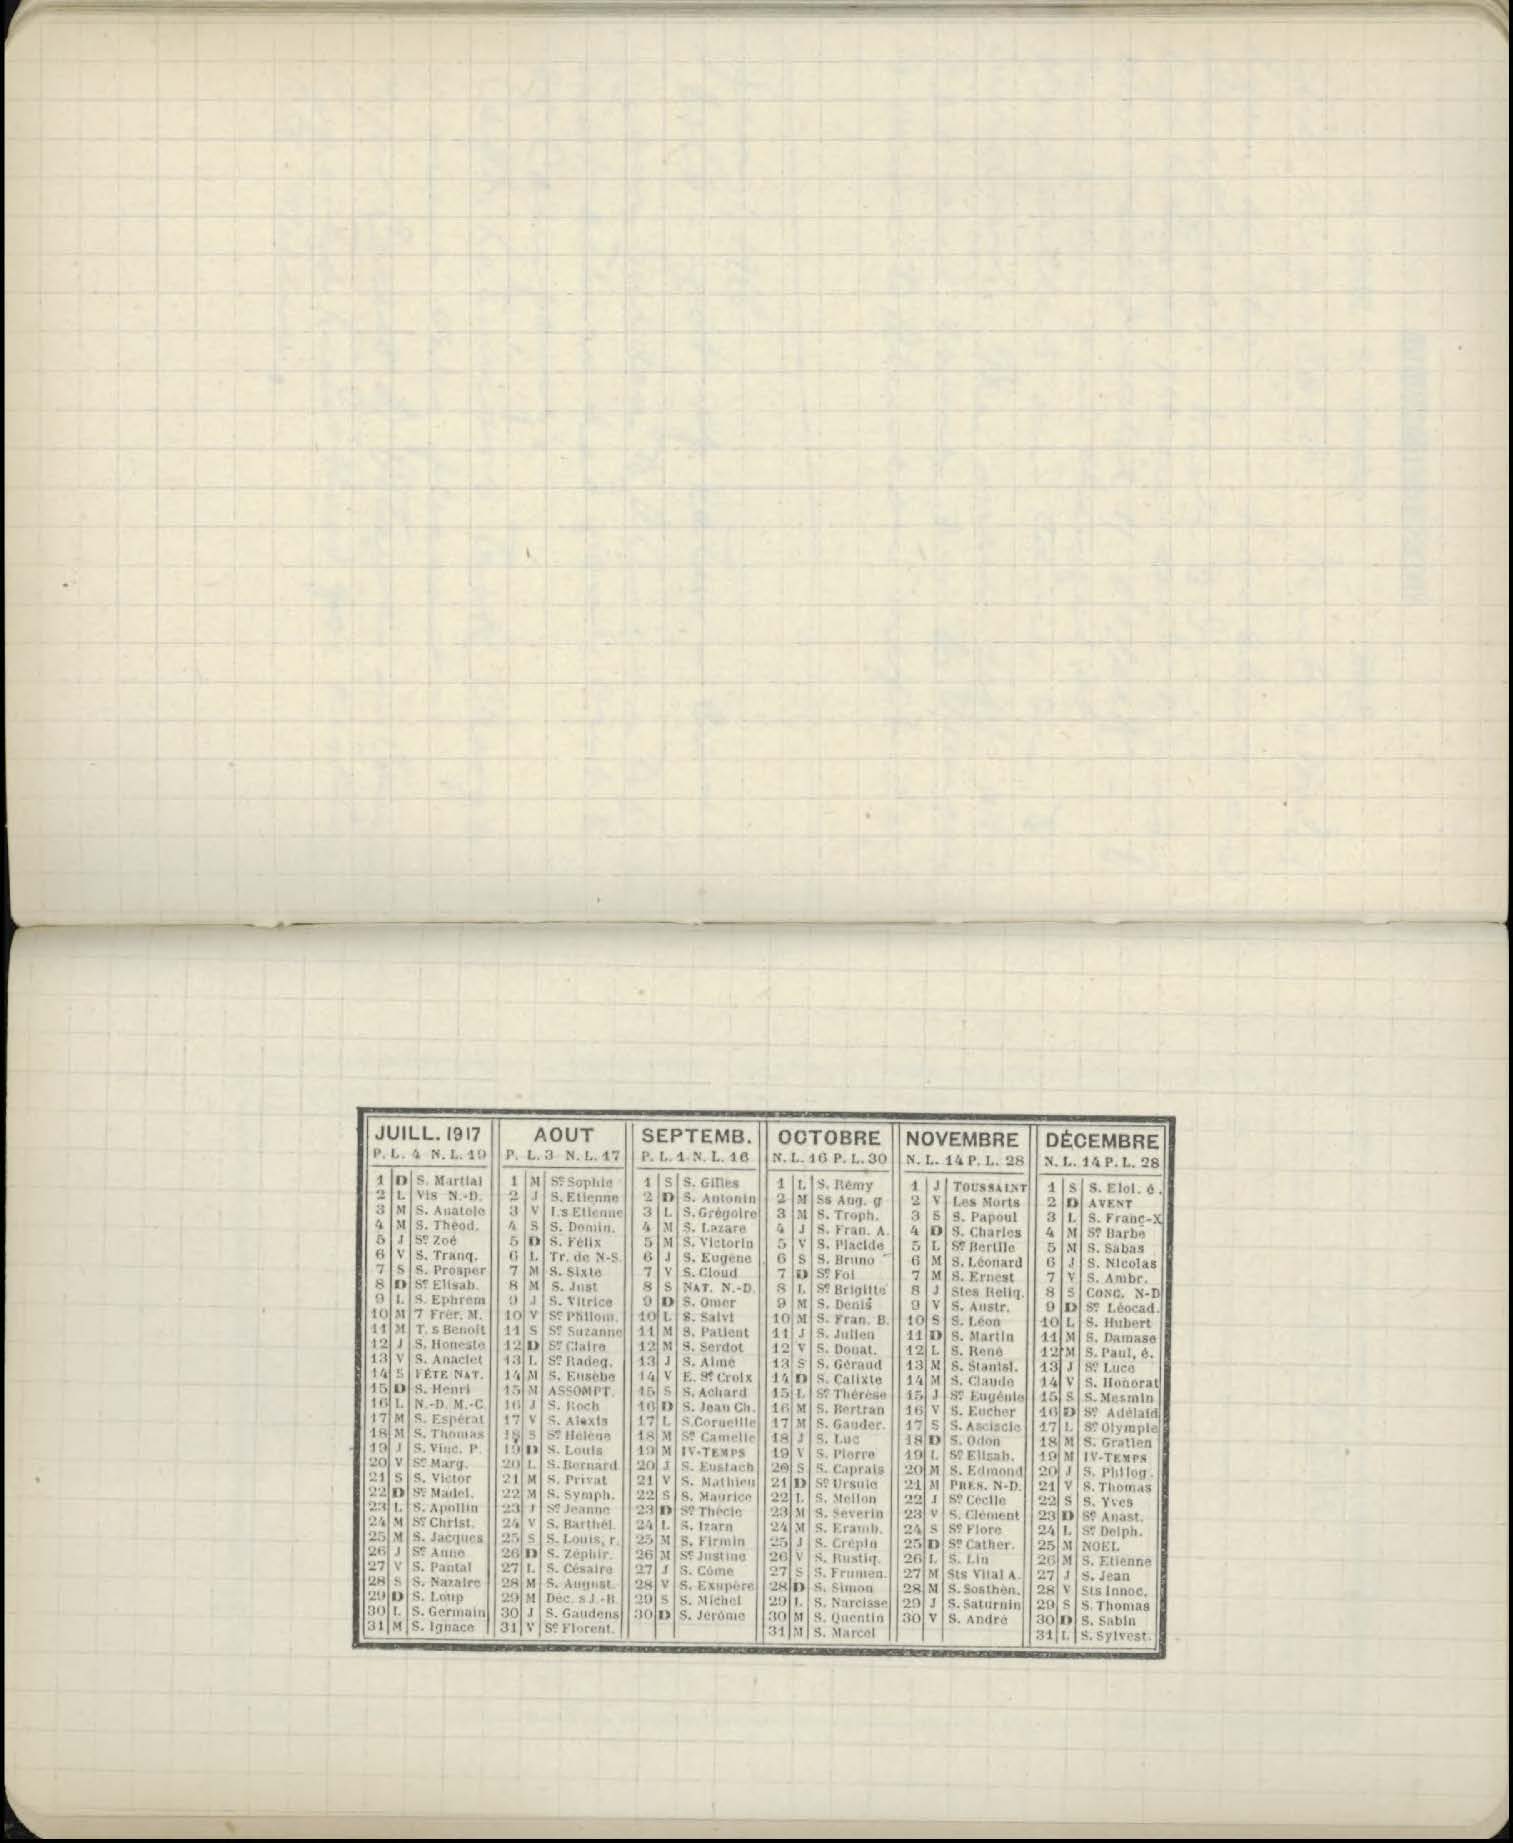 JUILL. 1917
P. L. 4 N. L. 19
1 D S. Martial
2 L Vis N.-D.
3 M S. Anatole
4 M S. Théod.
5 J Sᵉ Zoé
6 V S. Tranq.
7 S S. Prosper
8 D Sᵉ Elisab.
9 L S. Ephrem
10 M 7 Frèr. M.
11 M T. s Benoit
12 J S. Honeste
13 V S. Anaclet
14 S FÊTE NAT.
15 D S. Henri
16 L N.-D. M.-C.
17 M S. Espérat
18 M S. Thomas
19 J S. Vinc. P.
20 V Sᵉ Marg.
21 S S. Victor
22 D Sᵉ Madel.
23 L S. Apollin
24 M Sᵉ Christ.
25 M S. Jacques
26 J Sᵉ Anne
27 V S. Pantal
28 S S. Nazaire
29 D S. Loup
30 L S. Germain
31 M S. Ignace
AOUT
P. L. 3 N. L. 17
1 M Sᵉ Sophie
2 J S. Etienne
3 V I. s Etienne
4 S S. Domin.
5 D S. Félix
6 L Tr. de N-S.
7 M S. Sixte
8 M S. Just
9 J S. Vitrice
10 V Sᵉ Philom.
11 S Sᵉ Suzanne
12 D Sᵉ Claire
13 L Sᵉ Radeg.
14 M S. Eusèbe
15 M ASSOMPT.
16 J S. Roch
17 V S. Alexis
18 S Sᵉ Hélène
19 D S. Louis
20 L S. Bernard
21 M S. Privat
22 M S. Symph.
23 J Sᵉ Jeanne
24 V S. Barthél.
25 S S. Louis, r.
26 D S. Zéphir.
27 L S. Césaire
28 M S. August.
29 M Déc. s J.-B.
30 J S. Gaudens
31 V Sᵉ Florent.
SEPTEMB.
P. L. 1 N. L. 16
1 S S. Gilles
2 D S. Antonin
3 L S. Grégoire
4 M S. Lazare
5 M S. Victorin
6 J S. Eugène
7 V S. Cloud
8 S NAT. N.-D.
9 D S. Omer
10 L S. Salvi
11 M S. Patient
12 M S. Serdot
13 J S. Aimé
14 V E. Sᵉ Croix
15 S S. Achard
16 D S. Jean Ch.
17 L S. Corneille
18 M Sᵉ Camelle
19 M IV-TEMPS
20 J S. Eustach
21 V S. Mathieu
22 S S. Maurice
23 D Sᵉ Thècle
24 L S. Izarn
25 M S. Firmin
26 M Sᵉ Justine
27 J S. Côme
28 V S. Exupère
29 S S. Michel
30 D S. Jérôme
OCTOBRE
N. L. 16 P. L. 30
1 L S. Rémy
2 M Ss Ang. g
3 M S. Troph.
4 J S. Fran. A.
5 V S. Placide
6 S S. Bruno
7 D Sᵉ Foi
8 L Sᵉ Brigitte
9 M S. Denis
10 M S. Fran. B.
11 J S. Julien
12 V S. Donat.
13 S S. Géraud
14 D S. Calixte
15 L Sᵉ Thérèse
16 M S. Bertran
17 M S. Gauder.
18 J S. Luc
19 V S. Pierre
20 S S. Caprais
21 D Sᵉ Ursule
22 L S. Mellon
23 M S. Séverin
24 M S. Eramb.
25 J S. Crépin
26 V S. Rustiq.
27 S S. Frumen.
28 D S. Simon
29 L S. Narcisse
30 M S. Quentin
31 M S. Marcel
NOVEMBRE
N. L. 14 P. L. 28
1 J TOUSSAINT
2 V Les Morts
3 S S. Papoul
4 D S. Charles
5 L Sᵉ Bertile
6 M S. Léonard
7 M S. Ernest
8 J Stes Reliq.
9 V S. Austr.
10 S S. Léon
11 D S. Martin
12 L S. René
13 M S. Stanisl.
14 M S. Claude
15 J Sᵉ Eugénie
16 V S. Eucher
17 S S. Asciscle
18 D S. Odon
19 L Sᵉ Elisab.
20 M S. Edmond
21 M PRÉS. N-D.
22 J Sᵉ Cécile
23 V S. Clément
24 S Sᵉ Flore
25 D Sᵉ Cather.
26 L S. Lin
27 M Sts Vital A.
28 M S. Sosthèn.
29 J S. Saturnin
30 V S. André
DÉCEMBRE
N. L. 14 P. L. 28
1 S S. Eloi. é.
2 D AVENT
3 L S. Franç-X
4 M Sᵉ Barbe
5 M S. Sabas
6 J S. Nicolas
7 V S. Ambr.
8 S CONC. N-D
9 D Sᵉ Léocad.
10 L S. Hubert
11 M S. Damase
12 M S. Paul, é.
13 J Sᵉ Luce
14 V S. Honorat
15 S S. Mesmin
16 D Sᵉ Adélaïd
17 L Sᵉ Olympie
18 M S. Gratien
19 M IV-TEMPS
20 J S. Philog.
21 V S. Thomas
22 S S. Yves
23 D Sᵉ Anast.
24 L Sᵉ Delph.
25 M NOEL
26 M S. Etienne
27 J S. Jean
28 V Sts Innoc.
29 S S. Thomas
30 D S. Sabin
31 L S. Sylvest.